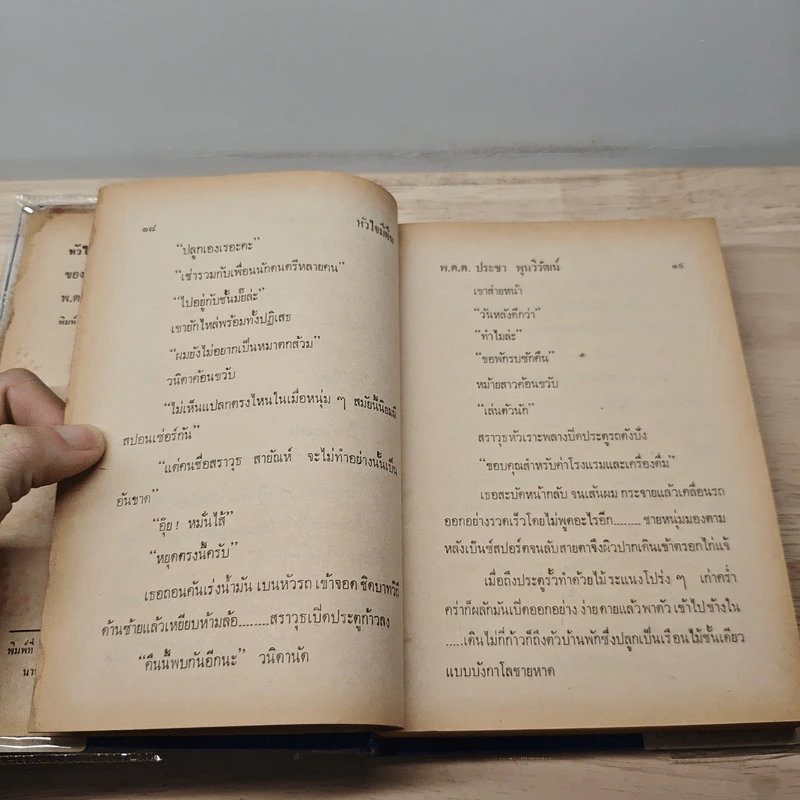 หัวใ
ของ
พ.ต
พิมพ์
พิมพ์ที่
นา
๑๘
หัวใจมีตีน
“ปลูกเองเรอะคะ”
“เช่ารวมกับเพื่อนนักดนตรีหลายคน”
“ไปอยู่กับชั้นมั๊ยล่ะ”
เขายักไหล่พร้อมทั้งปฏิเสธ
“ผมยังไม่อยากเป็นหมาตกส้วม”
วนิดาค้อนขวับ
“ไม่เห็นแปลกตรงไหนในเมื่อหนุ่ม ๆ สมัยนี้นิยมมี
สปอนเซ่อร์กัน”
“แต่คนชื่อสราวุธ สายัณห์ จะไม่ทำอย่างนั้นเป็น
อันขาด”
“อุ๊ย! หมั่นไส้”
“หยุดตรงนี้ครับ”
เธอถอนคันเร่งน้ำมัน เบนหัวรถ เข้าจอด ชิดบาทวิถี
ด้านซ้ายแล้วเหยียบห้ามล้อ........สราวุธเปิดประตูก้าวลง
“คืนนี้พบกันอีกนะ” วนิดานัด
พ.ต.ต. ประชา พูนวิวัฒน์
๑๙
เขาส่ายหน้า
“วันหลังดีกว่า”
“ทำไมล่ะ”
“ขอพักรบซักคืน”
หม้ายสาวค้อนขวับ
“เล่นตัวนัก”
สราวุธหัวเราะพลางปิดประตูรถดังปัง
“ขอบคุณสำหรับค่าโรงแรมและเครื่องดื่ม”
เธอสะบัดหน้ากลับ จนเส้นผม กระจายแล้วเคลื่อนรถ
ออกอย่างรวดเร็วโดยไม่พูดอะไรอีก........ ชายหนุ่มมองตาม
หลังเบ๊นซ์สปอร์ตจนลับสายตาจึงผิวปากเดินเข้าตรอกไก่แจ้
เมื่อถึงประตูรั้วทำด้วยไม้ระแนงโปร่ง ๆ เก่าคร่ำ
คร่าก็ผลักมันเปิดออกอย่าง ง่ายดายแล้วพาตัว เข้าไปข้างใน
.....เดินไม่กี่ก้าวก็ถึงตัวบ้านพักซึ่งปลูกเป็นเรือนไม้ชั้นเดียว
แบบบังกาโลชายหาด